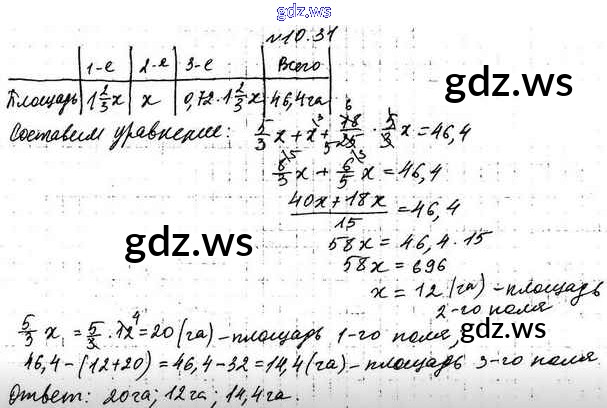 gdz.ws
№10.31
1-е 2-е 3-е Всего
Площадь 1 2/3 x x 0,72·1 2/3 x 46,4га
gdz.ws
Составим уравнение: 5/3 x + x + 18/25 · 5/3 x = 46,4
8/3 x + 6/5 x = 46,4
(40x+18x)/15 = 46,4
gdz.ws
58x = 46,4·15
58x = 696
x = 12 (га) – площадь
2-го поля
gdz.ws
5/3 x = 5/3 · 12 = 20 (га) – площадь 1-го поля,
46,4 – (12+20) = 46,4 – 32 = 14,4 (га) – площадь 3-го поля
Ответ: 20га; 12га; 14,4га.